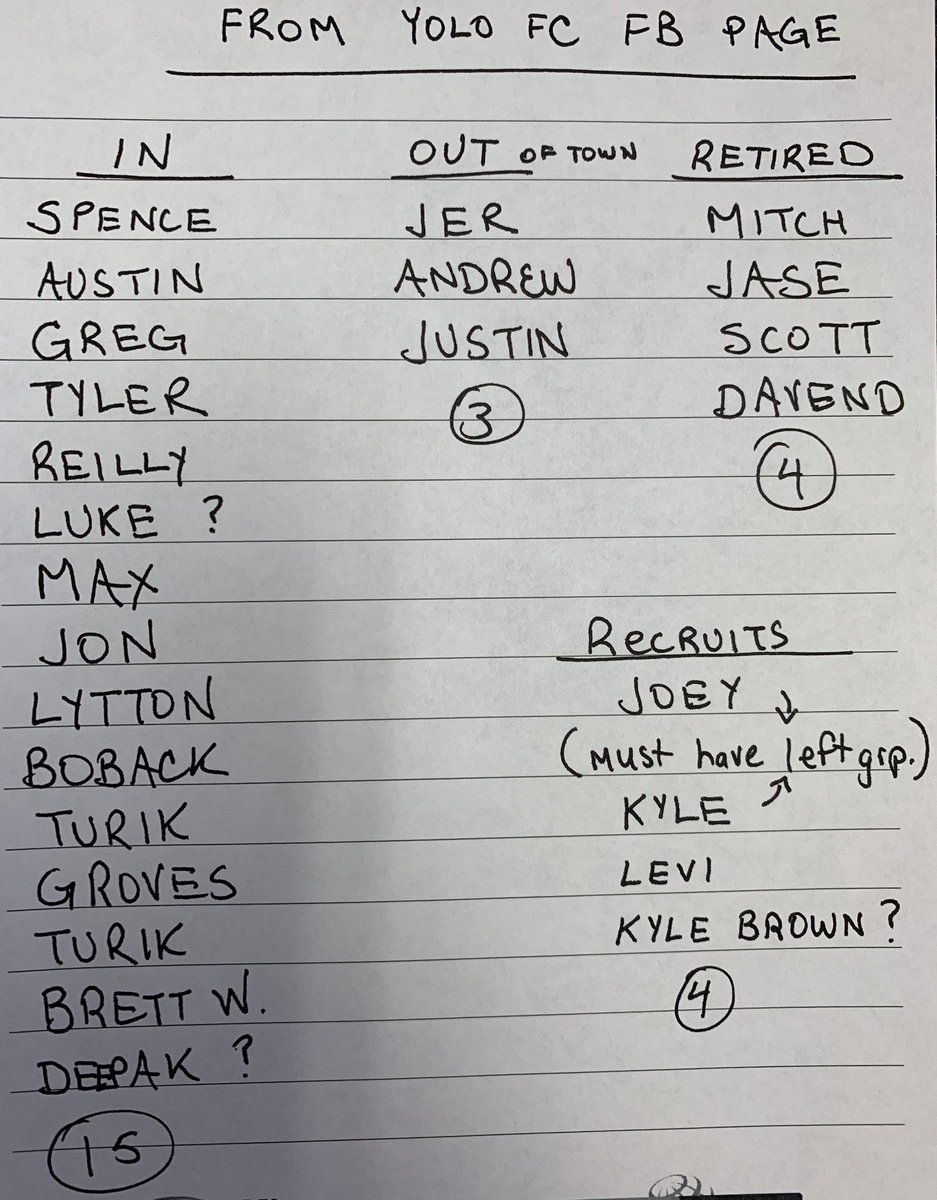 FROM YOLO FC FB PAGE
IN
SPENCE
AUSTIN
GREG
TYLER
REILLY
LUKE ?
MAX
JON
LYTTON
BOBACK
TURIK
GROVES
TURIK
BRETT W.
DEEPAK ?
15
OUT OF TOWN
JER
ANDREW
JUSTIN
3
RETIRED
MITCH
JASE
SCOTT
DAVEND
4
RECRUITS
JOEY ↓
(Must have left grp.)
KYLE ↗
LEVI
KYLE BROWN ?
4